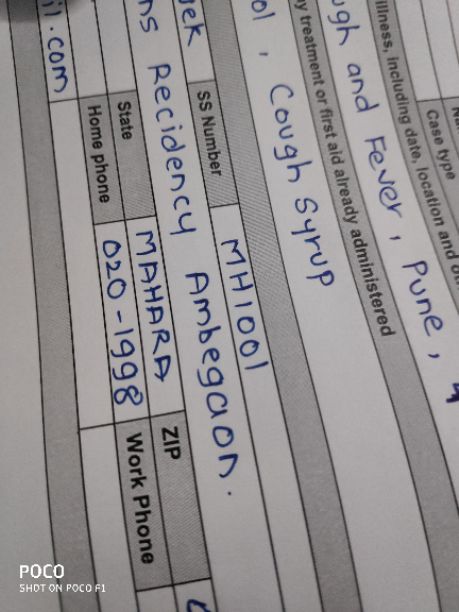 Case type
illness, including date, location and
ugh and Fever, Pune,
treatment or first aid already administered
ol, Cough Syrup
SS Number MH1001
ek
ns Recidency Ambegaon.
State MAHARA ZIP
Home phone 020-1998 Work Phone
il.com
POCO
SHOT ON POCO F1